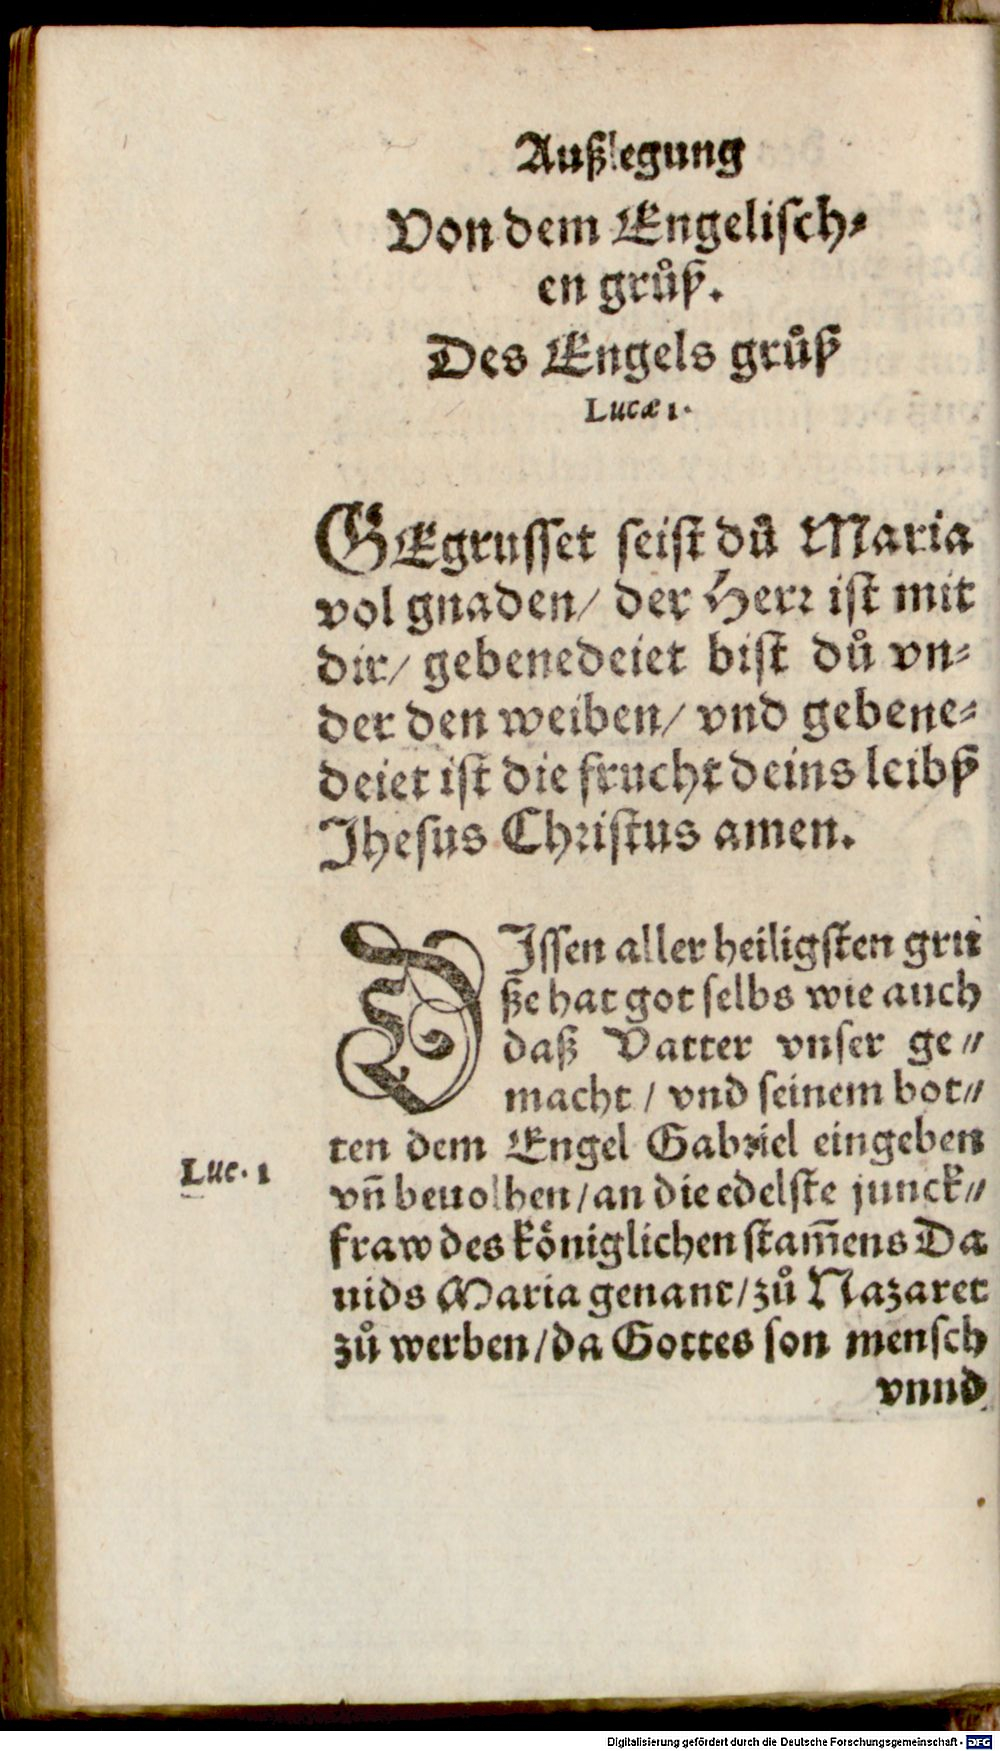 Außlegung
Von dem Engelisch⸗
en grůß.
Des Engels grůß
Lucæ 1.
GEgrusset seist dů Maria
vol gnaden/ der Herr ist mit
dir/ gebenedeiet bist dů vn⸗
der den weiben/ vnd gebene⸗
deiet ist die frucht deins leibß
Jhesus Christus amen.
DIssen aller heiligsten gru
ße hat got selbs wie auch
daß Vatter vnser ge⸗
macht / vnd seinem bot⸗
ten dem Engel Gabriel eingeben
Luc. 1
vn̄ beuolhen/an die edelste junck⸗
fraw des königlichen stam̄ens Da
uids Maria genant/zů Nazaret
zů werben/da Gottes son mensch
vnnd
Digitalisierung gefördert durch die Deutsche Forschungsgemeinschaft - DFG